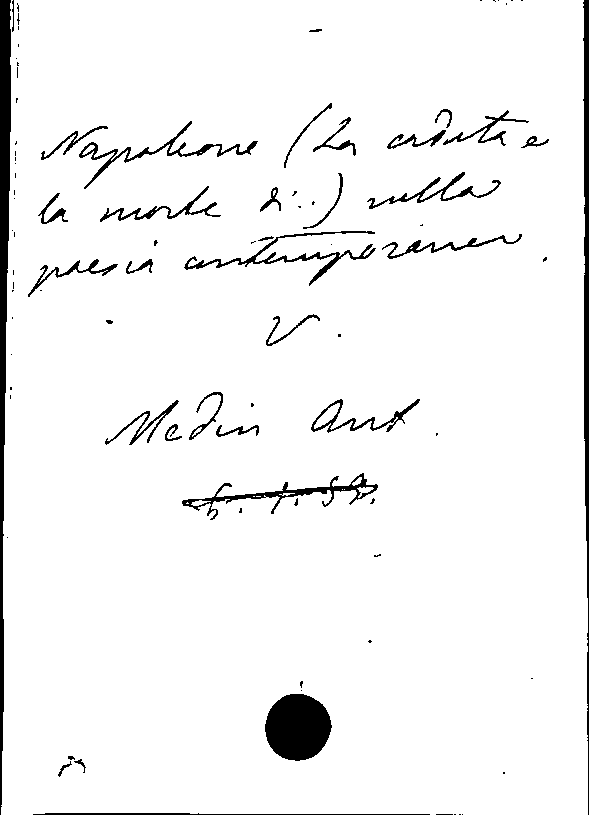 Napoleone (La caduta e
la morte di..) nella
poesia contemporanea.
V.
Medin Ant.